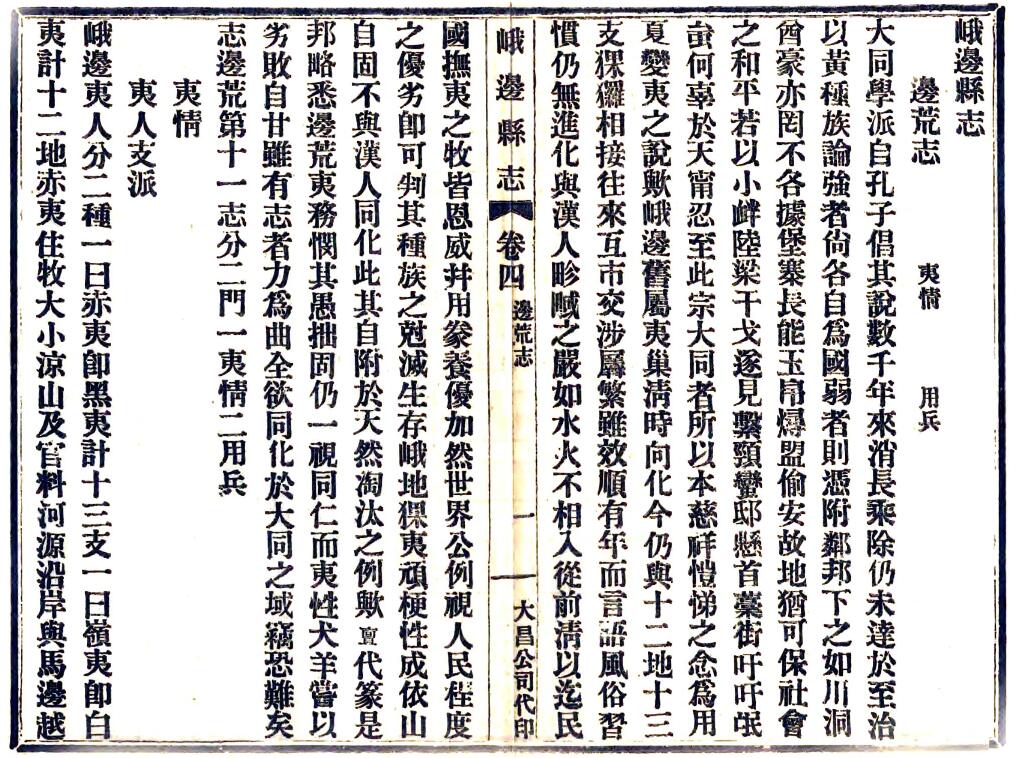 峨邊縣志
邊荒志 夷情 用兵
大同學派自孔子倡其說數千年來消長乘除仍未達於至治
以黃種族論強者尙各自爲國弱者則憑附鄰邦下之如川洞
酋豪亦罔不各據堡寨長能玉帛燖盟偷安故地猶可保社會
之和平若以小衅陸梁干戈遂見繫頸蠻邸懸首藁街吁吁氓
蚩何辜於天甯忍至此宗大同者所以本慈祥愷悌之念爲用
夏變夷之說歟峨邊舊屬夷巢淸時向化今仍與十二地十三
支猓玀相接往來互市交涉屬繁雖效順有年而言語風俗習
慣仍無進化與漢人畛域之嚴如水火不相入從前淸以迄民
峨邊縣志 卷四 邊荒志 一 大昌公司代印
國撫夷之牧皆恩威幷用豢養優加然世界公例視人民程度
之優劣卽可判其種族之尅滅生存峨地猓夷頑梗性成依山
自固不與漢人同化此其自附於天然淘汰之例歟亶代篆是
邦略悉邊荒夷務憫其愚拙固仍一視同仁而夷性犬羊嘗以
劣敗自甘雖有志者力爲曲全欲同化於大同之域竊恐難矣
志邊荒第十一志分二門一夷情二用兵
夷情
夷人支派
峨邊夷人分二種一曰赤夷卽黑夷計十三支一曰嶺夷卽白
夷計十二地赤夷住牧大小涼山及官料河源沿岸與馬邊越